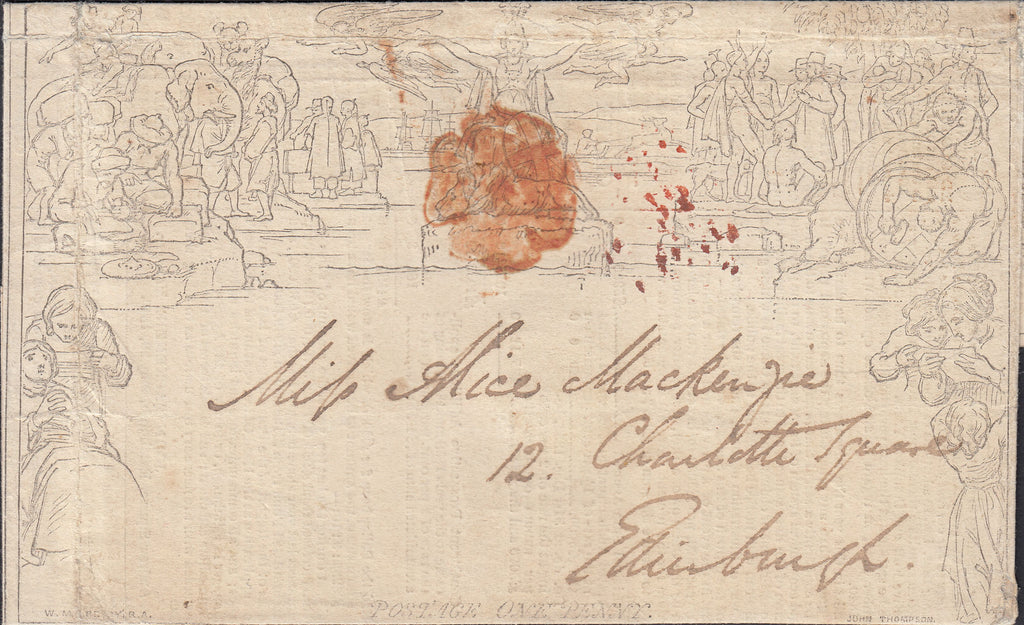 Miſs Alice Mackenzie
12. Charlotte Square
Edinburgh.
W. MULREADY. R.A.
POSTAGE ONE PENNY.
JOHN THOMPSON.